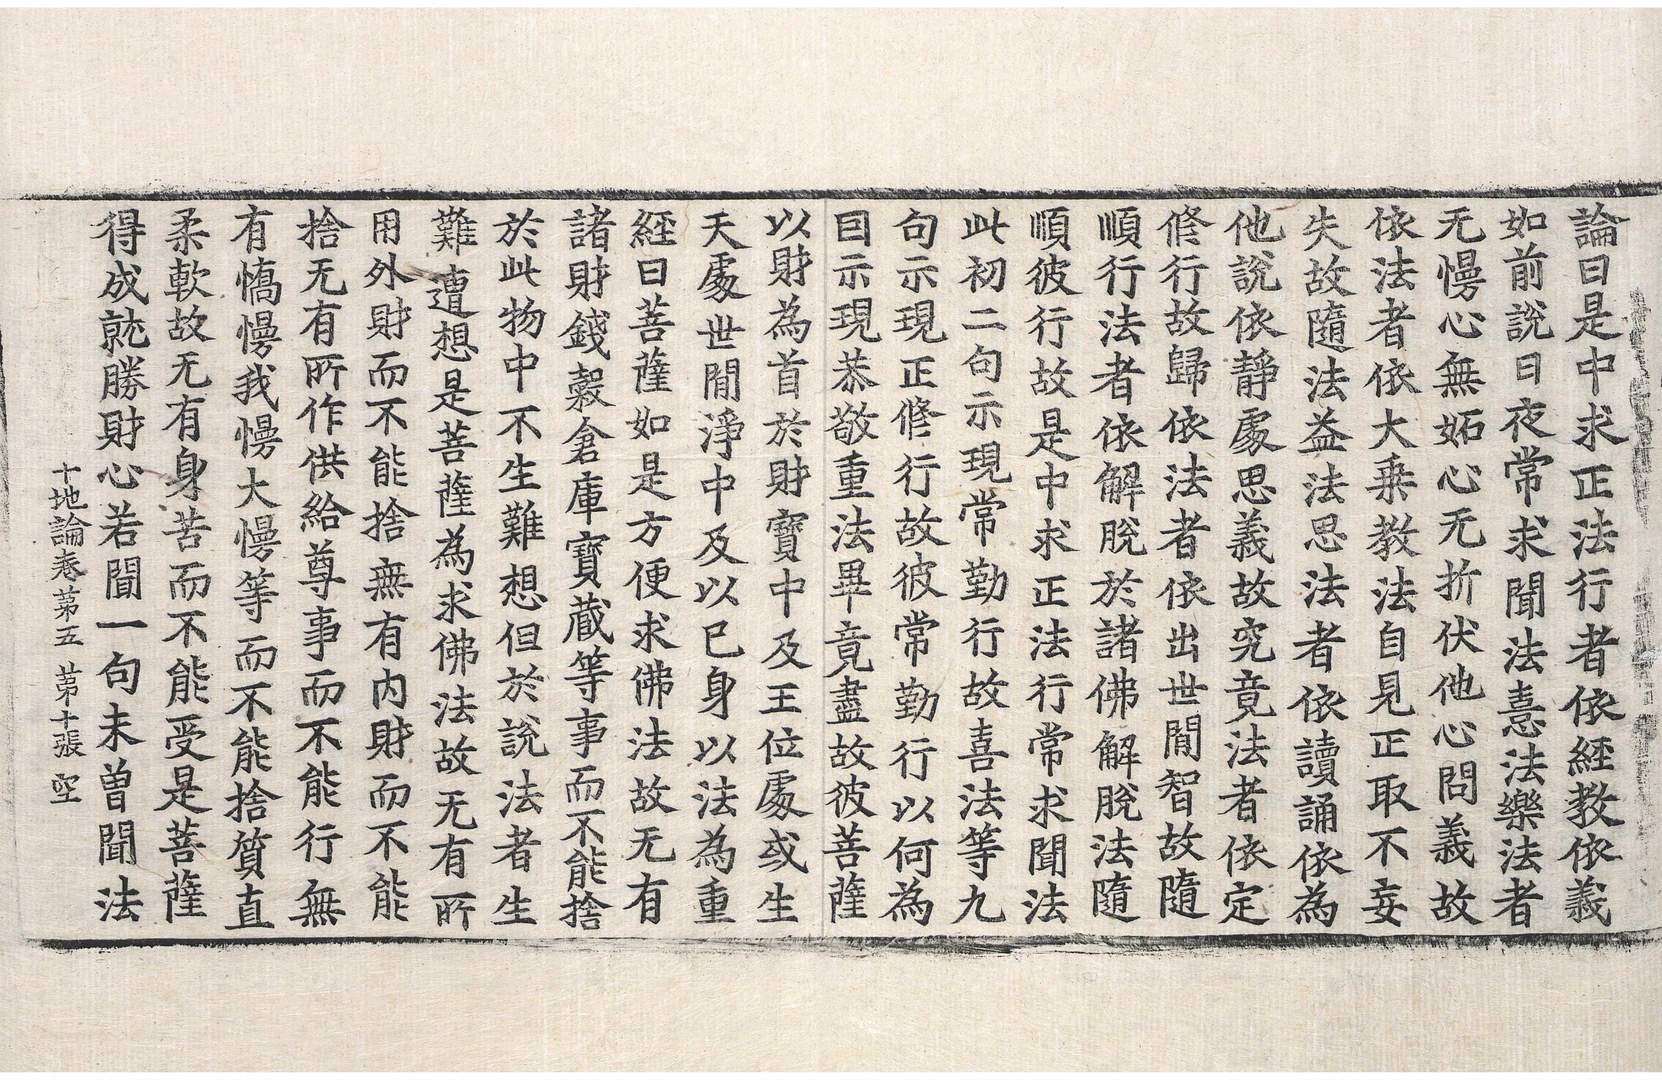 論曰是中求正法行者依經教依義
如前說曰夜常求聞法憙法樂法者
无慢心無妬心无折伏他心問義故
依法者依大乘教法自見正取不妄
失故隨法益法思法者依讀誦依為
他說依靜處思義故究竟法者依定
修行故歸依法者依出世閒智故隨
順行法者依解脫於諸佛解脫法隨
順彼行故是中求正法行常求聞法
此初二句示現常勤行故喜法等九
句示現正修行故彼常勤行以何為
因示現恭敬重法畢竟盡故彼菩薩
以財為首於財寶中及王位處或生
天處世閒淨中及以已身以法為重
經曰菩薩如是方便求佛法故无有
諸財錢穀倉庫寶藏等事而不能捨
於此物中不生難想但於說法者生
難遭想是菩薩為求佛法故无有所
用外財而不能捨無有內財而不能
捨无有所作供給尊事而不能行無
有憍慢我慢大慢等而不能捨質直
柔軟故无有身苦而不能受是菩薩
得成就勝財心若聞一句未曾聞法
十地論卷第五 第十張 空